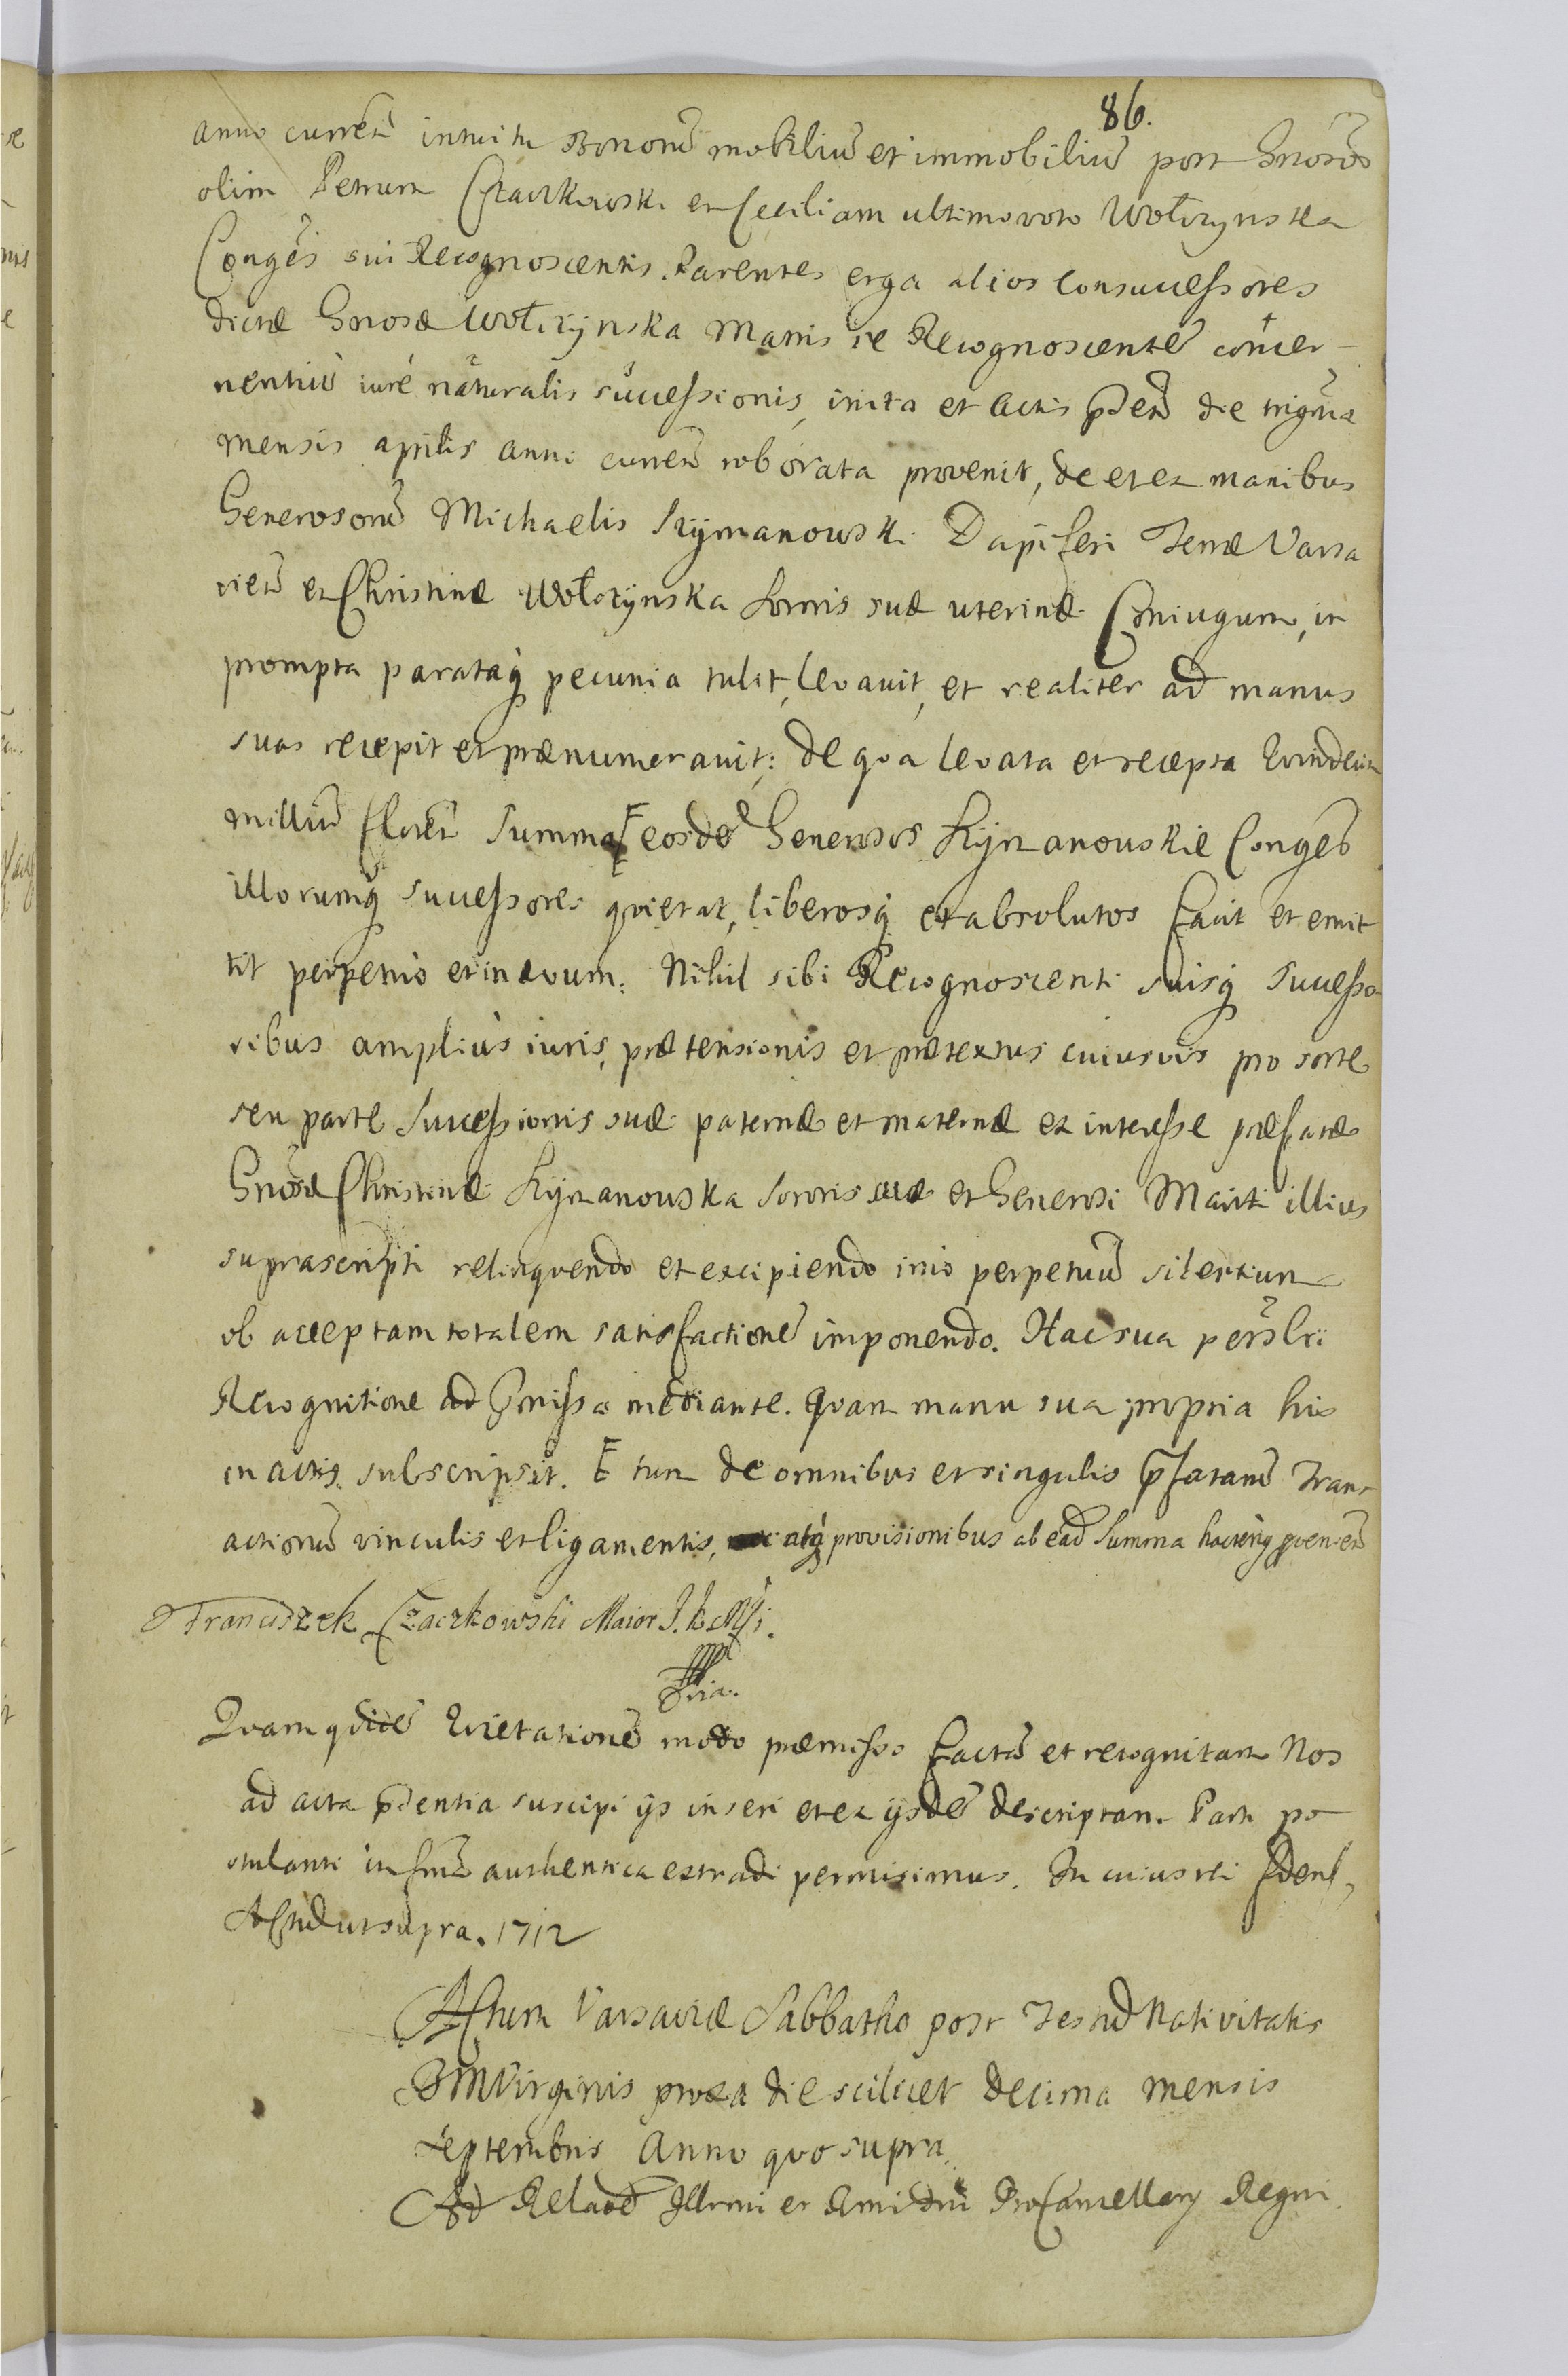 86.
anno currēn intuitu Bonorū mobiliū et immobiliū post Gnosos
olim Petrum Czaczkowski et Ceciliam ultimo voto Wołczynska
Conges sui Recognoscentis Parentes erga alios Consuccessores
dictæ Gnosæ Wołczynska Matris se Recognoscentē concer-
nentiū iure naturalis successionis, inita et Actis pñtibus die trigma
mensis aprilis anni currēn roborata provenit, de et ex manibus
Generosorū Michaelis Szymanowski Dapiferi Terræ Varsa
vien et Christinæ Wołczynska Sororis suæ uterinæ Coniugum, in
prompta parataq pecunia tulit, levavit, et realiter ad manus
suas recepit et prænumeravit: de qua levata et recepta Quindecim
milliū floren Summa eosdē Generosos Szymanouskie Conges
illorumq successores quietat, liberosq et absolutos facit et emit
tit perpetuo et in ævum. Nihil sibi Recognoscenti suisq Successo
ribus amplius iuris, prætensionis et prætextus cuiusvis pro sorte
seu parte Successionis suæ paternæ et maternæ ex interesse præfatæ
Gnosæ Christinæ Szymanouska Sororis suæ et Generosi Mariti illius
suprascripti relinquendo et excipiendo imo perpetuū silentium
ob acceptam totalem satisfactionē imponendo. Hac sua persli
Recognitione ad præmissa mediante. Quam manu sua propria his
in actis subscripsit. Et tum de omnibus et singulis pfatarū Trans
actionū vinculis et ligamentis, atq provisionibus ab eād Summa hacteng proven-en
Franciszek Czaczkowski Maior J. K. Mſci.
mppria.
Quam quidē Quietationē modo præmisso factā et recognitam Nos
ad acta p̄dentia suscipi ijs inseri et ex ijsdē descriptam Parti po
stulanti in formā authentica extradi permisimus. In cuius rei fidem
Actū ut supra. 1712
Actum Varsaviæ Sabbatho post Festū Nativitatis
BMVirginis proxa die scilicet decima mensis
septembris Anno quo supra
Ad Relaōē Illrmi et Rmi Dni ProCancellary Regni